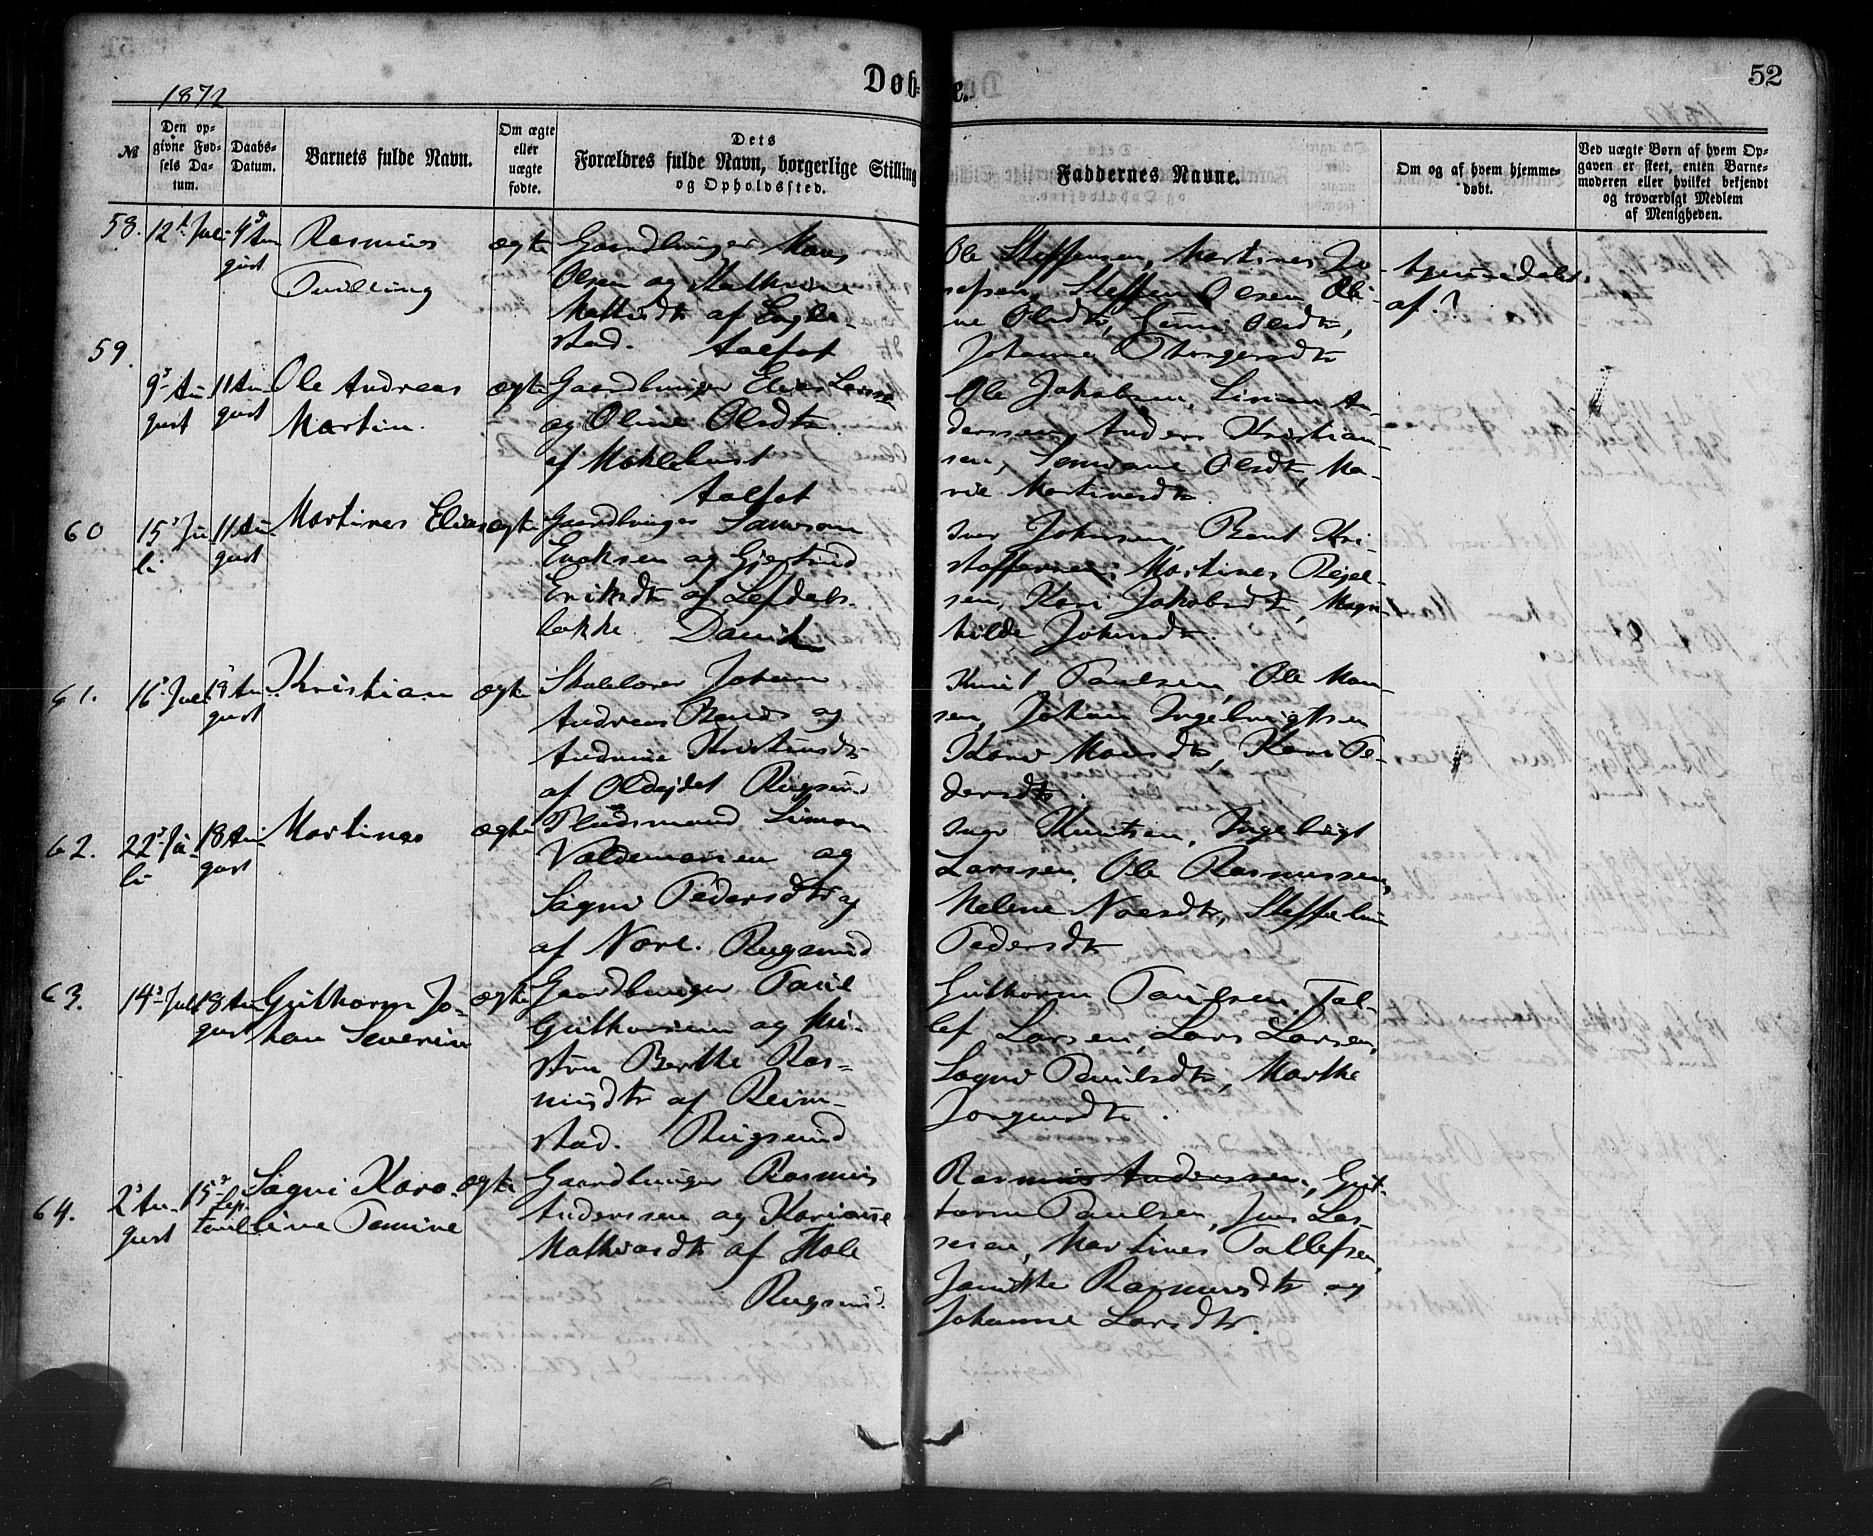 Døbte.
52
1872
№
Den op-
givne Fød-
sels Da-
tum.
Daabs-
Datum.
Barnets fulde Navn.
Om ægte
eller
uægte
fødte.
Dets
Forældres fulde Navn, borgerlige Stilling
og Opholdssted.
Faddernes Navne.
Om og af hvem hjemme-
døbt.
Ved uægte Børn af hvem Op-
gaven er skeet, enten Barne-
moderen eller hvilket bekjendt
og troværdigt Medlem
af Menigheden.
58.
12t Juli
4d Au-
gust
Rasmus
Tvilling
ægte
Gaardbruger Mons
Olsen og Kathrine
af Engle-
stad. Aalfot
Ole Steffensen, Martines Jo-
sefsen, Steffen Olsen, Oli-
ne Olsdtr, Guni Olsdtr,
Johanne
hjemmedøbt
af ?
59.
9d Au-
gust
11 Au-
gust
Ole Andreas
Martin.
ægte
Gaardbruger Elias Larssen
og Oline Olsdtr.
af Myklebust
Aalfot
Ole Jakobsen, Simon An-
derssen, Anders Kristian-
sen, Olsdtr, Ma-
rie Martinesdtr
60
15d Ju-
li
11 Au-
gust
Martines Elias
ægte
Gaardbruger Samson
Eriksen og Gjertrud
Eriksdtr af Lefdals-
bakke. Davik
Iver Johnsen, Bent Kri-
stoffersen, Martines
sen, Kari Jakobsdtr, Magn-
hilde Johnsdtr.
61.
16d Juli
18 Au-
gust
Kristian
ægte
Skolelærer Johan
Andreas og
Andrine
af Oldejdet Rugsund
Knut Paulsen, Ole Mon-
sen, Johan Ingebrigtsen
Kari Monsdtr, Kari Pe-
dersdtr.
62.
22d Ju-
li
18 Au-
gust
Martines
ægte
Pladsmand Simon
Valdemarsen og
Sagni Pedersdtr
af Nore. Rugsund
Iver Knutsen, Ingebrigt
Larssen, Ole Rasmussen,
Helene
Pedersdtr
63.
14d Juli
18 Au-
gust
Guthorm Jo-
han Severin
ægte
Gaardbruger Paul
Guthormsen og Hu-
stru Berthe Ras-
musdtr af Reim-
stad. Rugsund
Guthorm Paulsen, Tal-
lef Larsen, Lars Larsen,
Sagni Paulsdtr, Marthe
Jørgensdtr.
64.
2d Au-
gust
15d Sep-
tember
Sagni Karo-
line Tomine
ægte
Gaardbruger Rasmus
Anderssen og Karianne
Mathiasdtr af Hole
Rugsund.
Rasmus Anderssen, Gut-
torm Paulsen, Jens Las-
sesen, Martines Tallefsen,
Jamitthe Rasmusdtr og
Johanne Larsdtr.